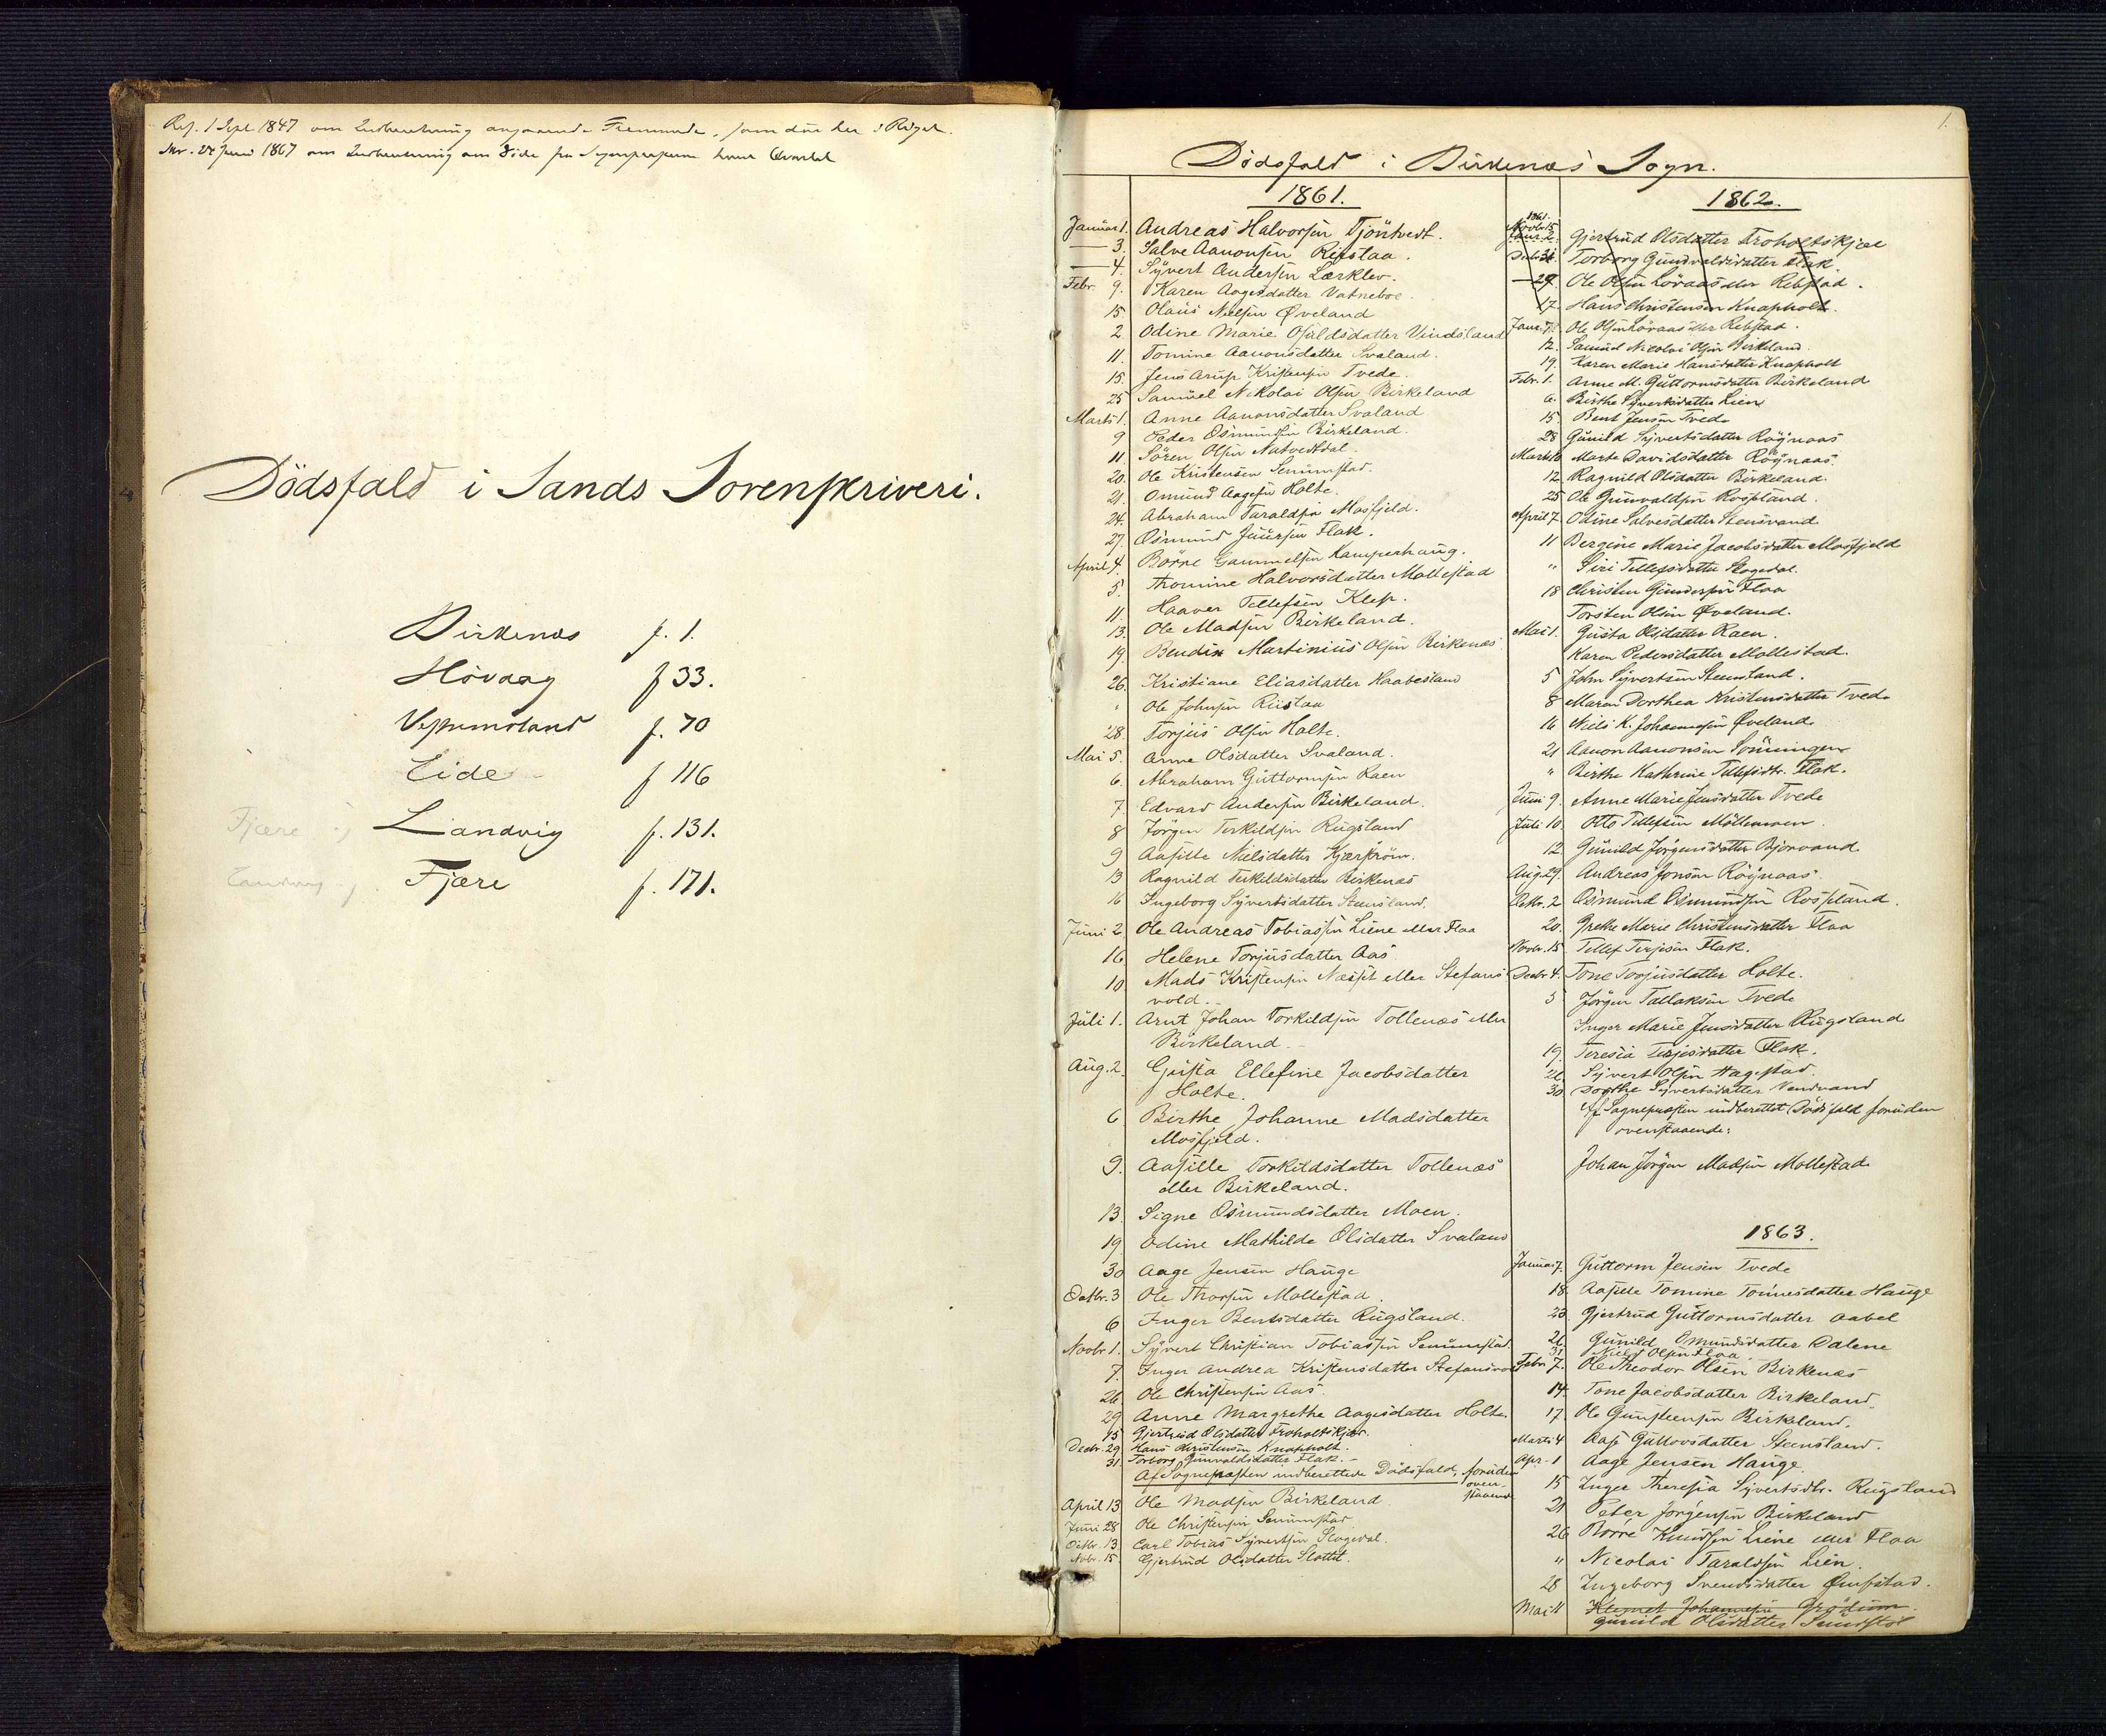 Res. 1 Sept 1847 om Indberetning angaaende Fremmede, som döe her i Riget.
Skr. 24 Juni 1867 om Indberetning om Döde fra Sognepresterne hvert Qvartal
Dödsfald i Sands Sorenskriveri.
Birkenæs f. 1.
Hövaag f 33.
Vestremoland f. 70
Eide f 116
Fjære Landvig f. 131.
Landvig Fjære f. 171.
1.
Dödsfald i Birkenæs Sogn.
1861.
Januar 1. Andreas Halvorsen Tjöntvedt.
— 3. Salve Aanonsen Refslaa.
— 4. Syvert Andersen Lærklev.
Febr. 9. Karen Aagesdatter Vatneboe.
15. Olaus Nielsen Øveland
2 Odine Marie Osuldsdatter Vindsland
11. Tomine Aanonsdatter Svaland.
15. Jens Arup Kristensen Tvede.
25 Samuel Nikolai Olsen Birkeland
Marts 1. Anne Aanonsdatter Svaland
9 Peder Osmundsen Birkeland.
11. Sören Olsen Natvedtdal.
20. Ole Kristensen Senumstad.
21. Omund Aagesen Holte.
24. Abraham Taraldsen Mosfjeld.
27. Osmund Juursen Flak.
April 4. Börre Gammelsen Kamperhaug.
5. Thomine Halvorsdatter Mollestad
11. Haaver Tellefsen Klep.
13. Ole Madsen Birkeland.
19. Bendix Martinius Olsen Birkenæs
26. Kristiane Eliasdatter Haabesland
" Ole Johnsen Rislaa
28. Torjus Olsen Holte.
Mai 5. Anne Olsdatter Svaland.
6. Abraham Guttormsen Raen
7. Edvard Andersen Birkeland.
8 Jörgen Terkildsen Rugsland
9 Aasille Nielsdatter Kjærström.
13 Ragnild Terkildsdatter Birkenæs
16 Ingeborg Syvertsdatter Steensland.
Juni 2 Ole Andreas Tobiassen Liene eller Flaa
16 Helene Torjusdatter Aas
10 Mads Kristensen Næsset eller Stefans
vold.
Juli 1. Arnt Johan Torkildsen Tollenæs eller
Birkeland.
Aug. 2. Gusta Ellefine Jacobsdatter
Holte.
6 Birthe Johanne Madsdatter
Mosfjeld.
9. Aasille Torkildsdatter Tollenæs
eller Birkeland.
13. Signe Osmundsdatter Moen.
19. Odine Mathilde Olsdatter Svaland
30 Aage Jensen Hauge
Octbr. 3 Ole Thorsen Mollestad.
6 Inger Bentsdatter Rugsland.
Novbr. 1. Syvert Christian Tobiassen Senumstad
7. Inger Andrea Kristensdatter Stefansvold
26 Ole Christensen Aas.
29 Anne Margrethe Aagesdatter Holte.
15 Gjertrud Olsdatter Troholtskjær.
Decbr. 29 Hans Christensen Knapholt.
31. Torborg Gunvaldsdatter Flak.
Af Sognepresten indberettede Dödsfald, foruden
ovenstaaende
April 13 Ole Madsen Birkeland
Juni 28 Ole Christensen Senumstad
Octbr. 13. Carl Tobias Syvertsen Slogedal.
Nobr. 15. Gjertrud Olsdatter Slottet.
1862.
1861.
Novbr 15 Gjertrud Olsdatter Troholtskjær
Decbr 31. Torborg Gunvaldsdatter Flak
— 29. Ole Olsen Lövaas eller Rebstad.
17. Hans Christensen Knapholt.
Janr. 7. Ole Olsen Lövaas eller Rebstad.
12. Samuel Nicolai Olsen Birkeland.
19. Karen Marie Hansdatter Knapholt
Febr. 1. Anne M. Guttormsdatter Birkeland
6. Birthe Syvertsdatter Lien
15 Bent Jensen Tvede
28 Gunild Syvertsdatter Rögnaas
Marts 10 Marte Davidsdatter Rögnaas.
12. Ragnild Olsdatter Birkeland.
25 Ole Gunvaldsen Rosseland.
April 7. Odine Salvesdatter Stensvand
11 Bergine Marie Jacobsdatter Mosfjeld
" Siri Tellefsdatter Slogedal.
18 Christen Gundersen Flaa
Torsten Olsen Øveland.
Mai 1. Gusta Olsdatter Raen.
Karen Pedersdatter Mollestad.
5 John Syvertsen Steensland.
8 Maren Dorthea Kristensdatter Tvede
16 Niels K. Johannesen Øveland
21 Aanon Aanonsen Sönningen
" Birthe Kathrine Tellefsdtr. Flak.
Juni 9. Anne Marie Jensdatter Tvede
Juli 10. Otto Tellefsen Möllemoen.
12 Gunild Jørgensdatter Bjorvand
Aug. 29. Andreas Jonsen Rögnaas
Octbr. 2 Osmund Osmundsen Rosseland.
20. Grethe Marie Christensdatter Flaa
Novbr. 15 Tellef Terjesen Flak.
Decbr 4. Tone Torjusdatter Holte.
5 Jörgen Tallaksen Tvede
Inger Marie Jensdatter Rugsland
19. Teresia Terjesdatter Flak.
26 Syvert Olsen Hagestad.
30 Dorthe Syvertsdatter Nendvand
Af Sognepresten indberettet Dödsfald foruden
ovenstaaende:
Johan Jörgen Madsen Mollestad
1863.
Januar 7. Guttorm Jensen Tvede
18. Aasille Tomine Tönnesdatter Hauge
23. Gjertrud Guttormsdatter Aabel
26 Gunild Omundsdatter Dalene
31 Niels Olsen Flaa
Febr 7. Ole Theodor Olsen Birkenæs
14. Tone Jacobsdatter Birkeland.
17. Ole Gunsteensen Birkeland.
Marts 4 Aase Guttovsdatter Steensland.
Apr. 1 Aage Jensen Hauge
15 Inger Theresia Syvertsdtr. Rugsland
21 Peter Jörgensen Birkeland
26 Börre Knudsen Liene eller Flaa
" Nicolai Taraldsen Lien.
28 Ingeborg Svendsdatter Omstad.
Mai 11 Klemet Johannesen Grödum.
Gunild Olsdatter